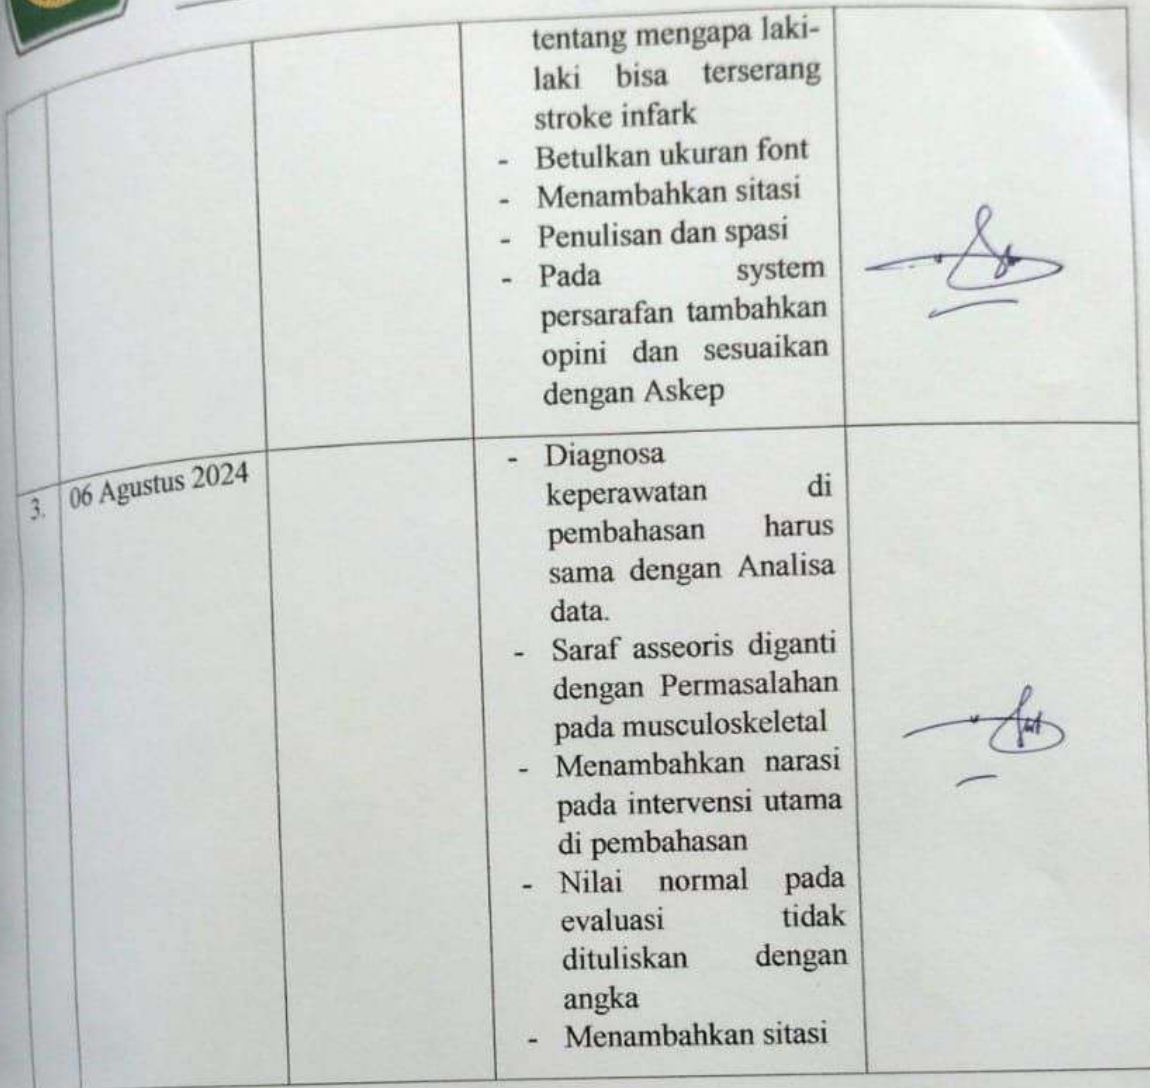 tentang mengapa laki-
laki bisa terserang
stroke infark
- Betulkan ukuran font
- Menambahkan sitasi
- Penulisan dan spasi
- Pada system
persarafan tambahkan
opini dan sesuaikan
dengan Askep
3. 06 Agustus 2024
- Diagnosa
keperawatan di
pembahasan harus
sama dengan Analisa
data.
- Saraf asseoris diganti
dengan Permasalahan
pada musculoskeletal
- Menambahkan narasi
pada intervensi utama
di pembahasan
- Nilai normal pada
evaluasi tidak
dituliskan dengan
angka
- Menambahkan sitasi